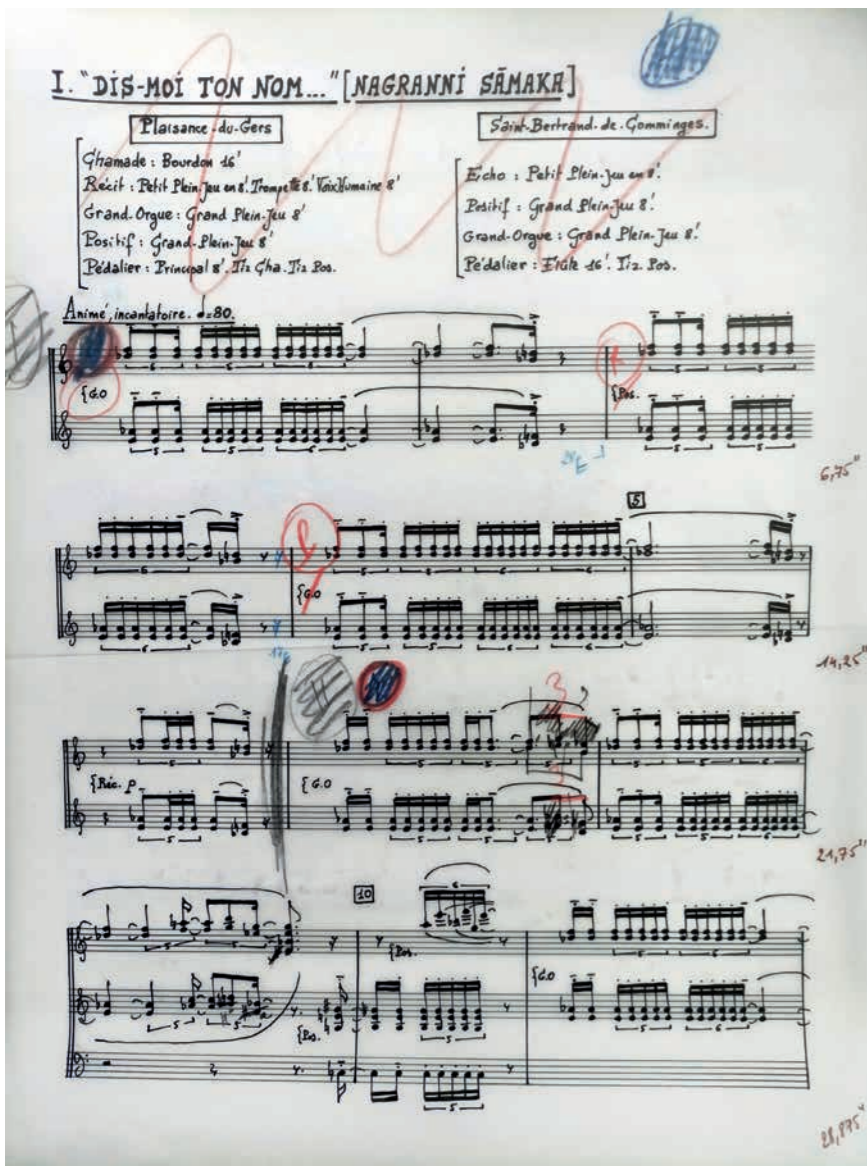 I. "DIS-MOI TON NOM..." [NAGRANNI SĀMAKA]
Plaisance-du-Gers
Chamade : Bourdon 16'
Récit : Petit Plein-Jeu en 8'. Trompette 8'. Voix Humaine 8'
Grand-Orgue : Grand Plein-Jeu 8'
Positif : Grand-Plein-Jeu 8'
Pédalier : Principal 8'. Tir Cha. Tir Pos.
Saint-Bertrand-de-Comminges.
Echo : Petit Plein-Jeu en 8'.
Positif : Grand Plein-Jeu 8'.
Grand-Orgue : Grand Plein-Jeu 8'.
Pédalier : Flûte 16'. Tir. Pos.
Animé, incantatoire. ♩=80.
5 5 6 5 5
{G.O {Pos.
5 5 6 5 5
6,75"
5
6 5 5 6 6
{G.O
6 5 5 6 6
14,25"
3
5 5 5 5 5 6
{Réc. p {G.O
3
5 5 5 5 5 6
21,75"
10
6
5 5 {Pos. 5 6
{G.O
5 5 {Pos. 5 5 6
5
28,875"